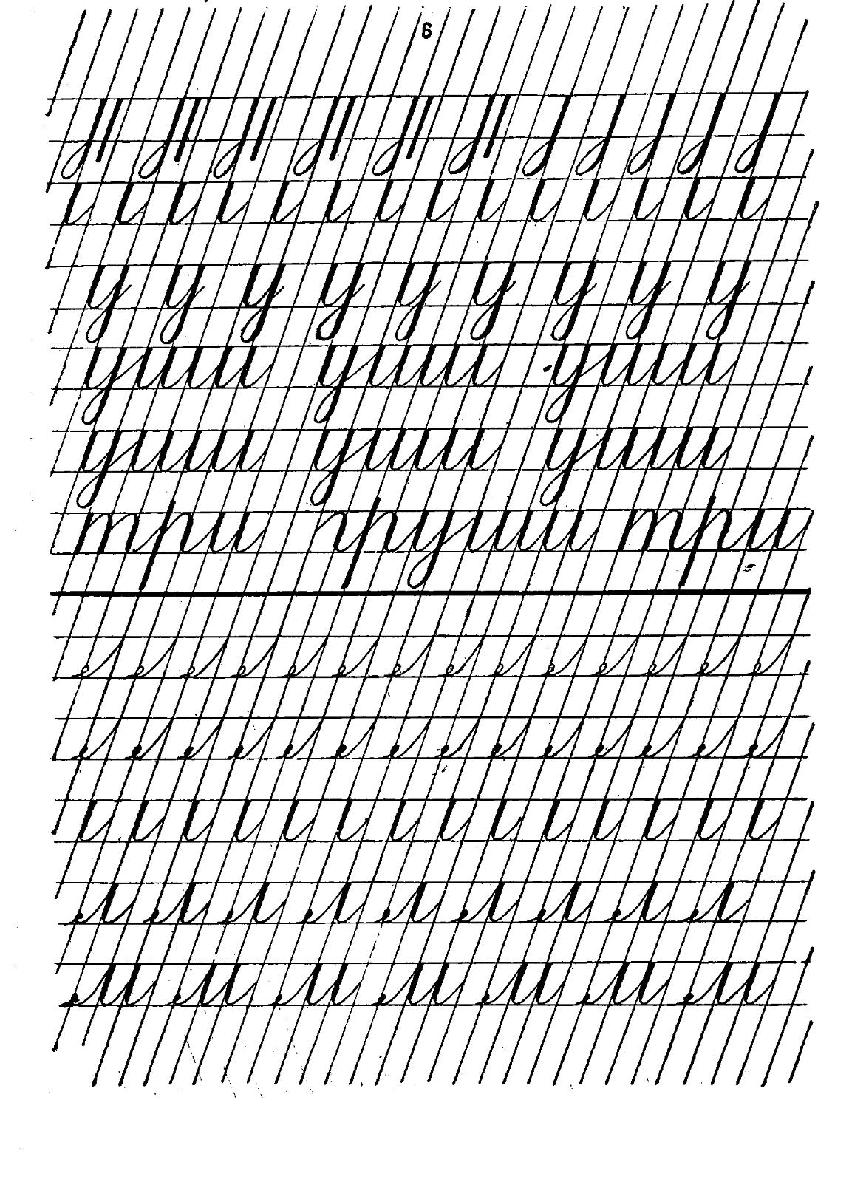 6
у у у у у у у у у
уши уши уши
уши уши уши
три груши три
л л л л л л л л л
м м м м м м м